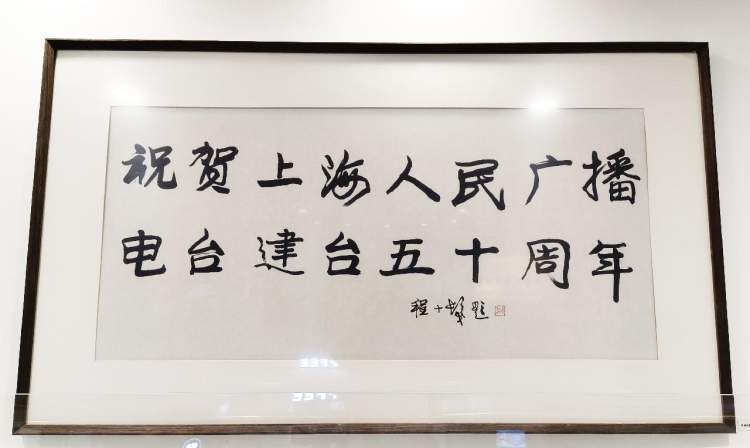 祝贺上海人民广播
电台建台五十周年
程十髮题